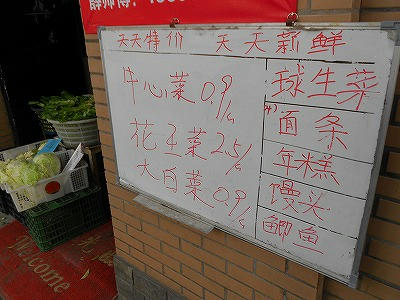 天天特价 天天新鲜
牛心菜 0.9/斤
花王菜 2.5/斤
大白菜 0.9/斤
球生菜
面条
年糕
馒头
鲫鱼
Welcome